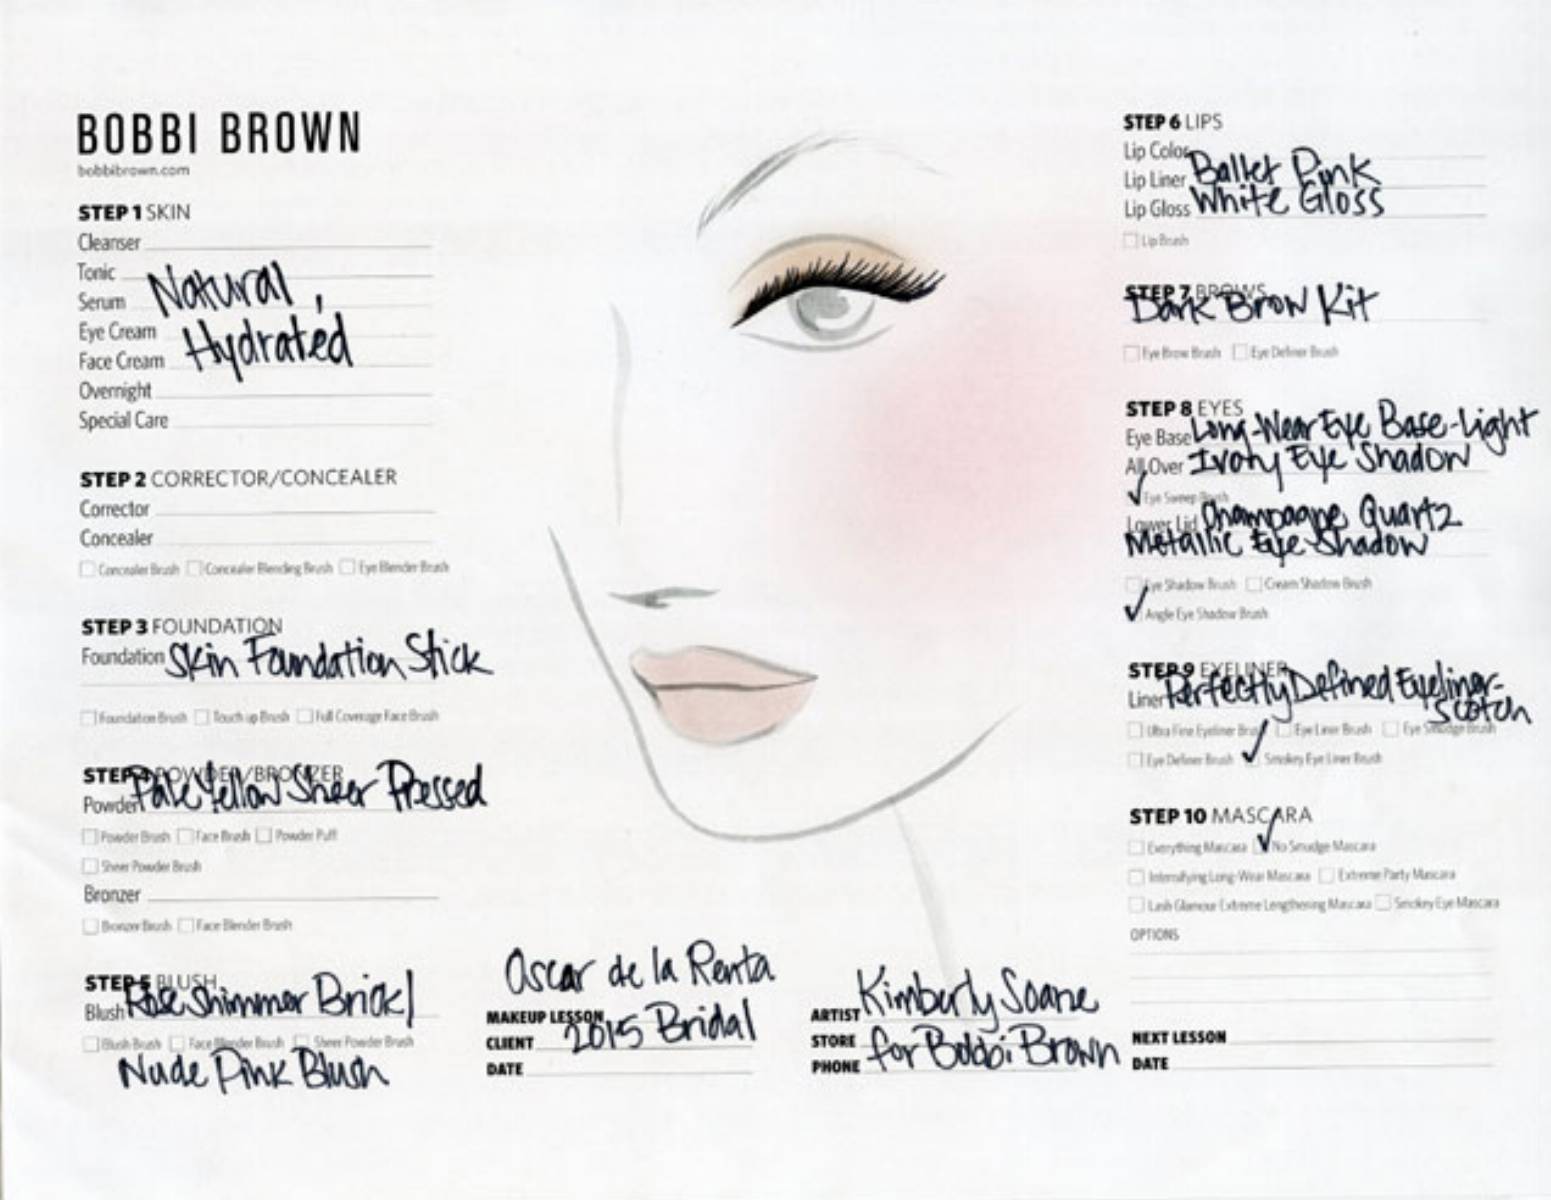 BOBBI BROWN
bobbibrown.com
STEP 1 SKIN
Cleanser
Tonic
Serum Natural,
Eye Cream
Face Cream Hydrated
Overnight
Special Care
STEP 2 CORRECTOR/CONCEALER
Corrector
Concealer
Concealer Brush Concealer Blending Brush Eye Blender Brush
STEP 3 FOUNDATION
Foundation Skin Foundation Stick
Foundation Brush Touch up Brush Full Coverage Face Brush
STEP 4 POWDER/BRONZER
Powder Pale Yellow Sheer Pressed
Powder Brush Face Brush Powder Puff
Sheer Powder Brush
Bronzer
Bronzer Brush Face Blender Brush
STEP 5 BLUSH
Blush Rose Shimmer Brick/
Blush Brush Face Blender Brush Sheer Powder Brush
Nude Pink Blush
Oscar de la Renta
MAKEUP LESSON
CLIENT 2015 Bridal
DATE
ARTIST Kimberly Soane
STORE for Bobbi Brown
PHONE
STEP 6 LIPS
Lip Color
Lip Liner Ballet Pink
Lip Gloss White Gloss
Lip Brush
STEP 7 BROWS
Dark Brow Kit
Eye Brow Brush Eye Definer Brush
STEP 8 EYES
Eye Base Long-Wear Eye Base-Light
All Over Ivory Eye Shadow
Eye Sweep Brush
Lower Lid Champagne Quartz
Metallic Eye Shadow
Eye Shadow Brush Cream Shadow Brush
Angle Eye Shadow Brush
STEP 9 EYELINER
Liner Perfectly Defined Eyeliner-
Scotch
Ultra Fine Eyeliner Brush Eye Liner Brush Eye Smudge Brush
Eye Definer Brush Smokey Eye Liner Brush
STEP 10 MASCARA
Everything Mascara No Smudge Mascara
Intensifying Long-Wear Mascara Extreme Party Mascara
Lash Glamour Extreme Lengthening Mascara Smokey Eye Mascara
OPTIONS
NEXT LESSON
DATE